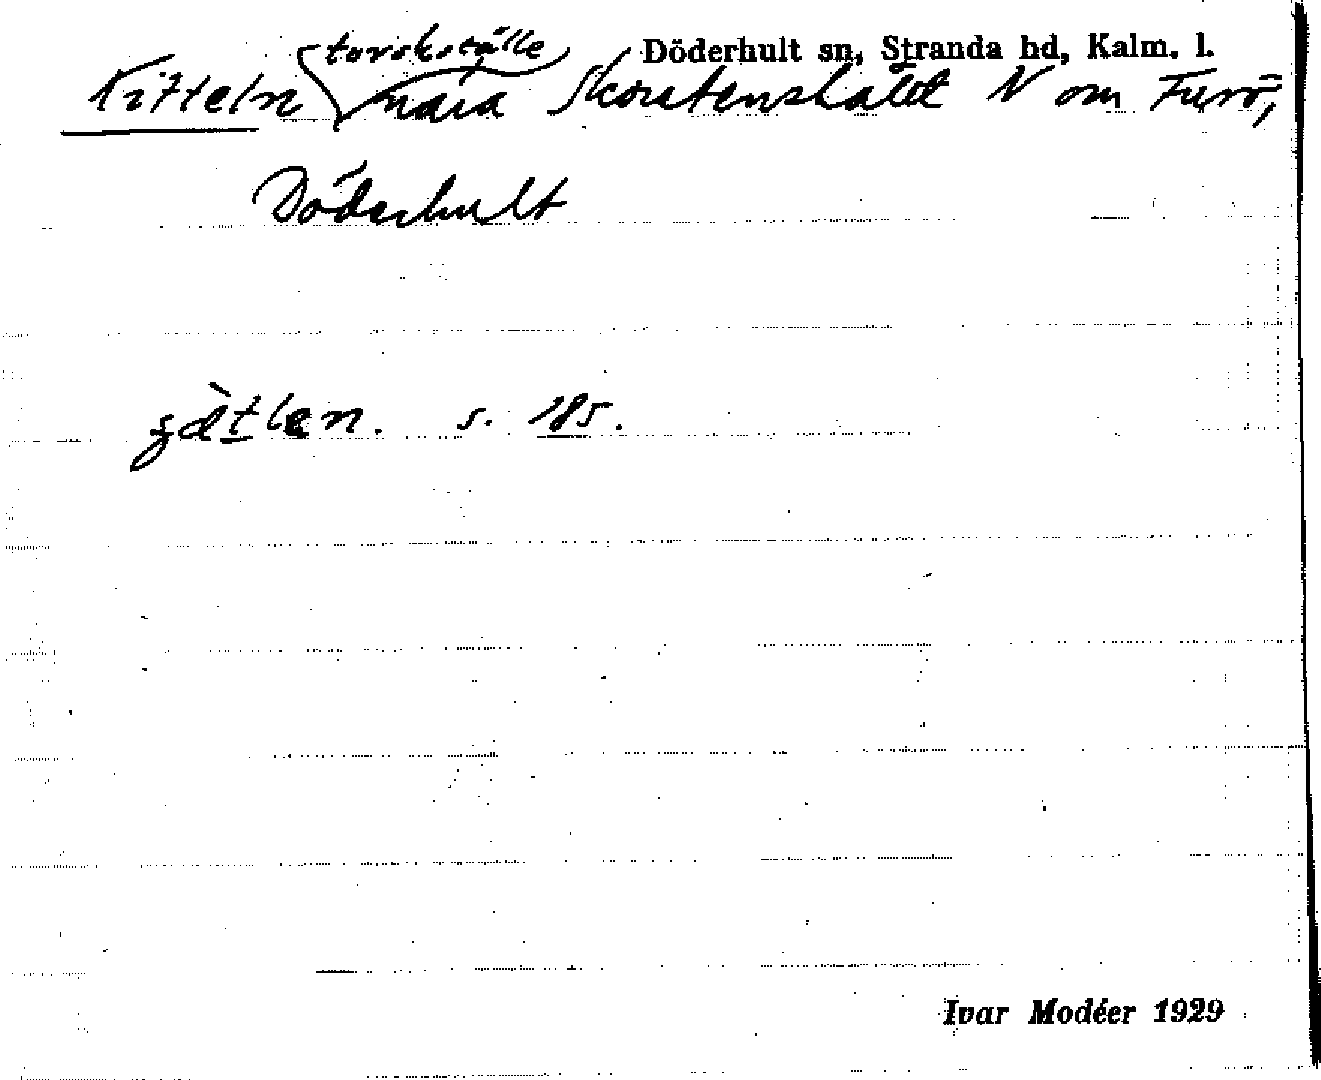 Döderhult sn, Stranda hd, Kalm. l.
torskställe
Kitteln nära Skorstenshålet N om Furö,
Döderhult
s. 185.
Ivar Modéer 1929